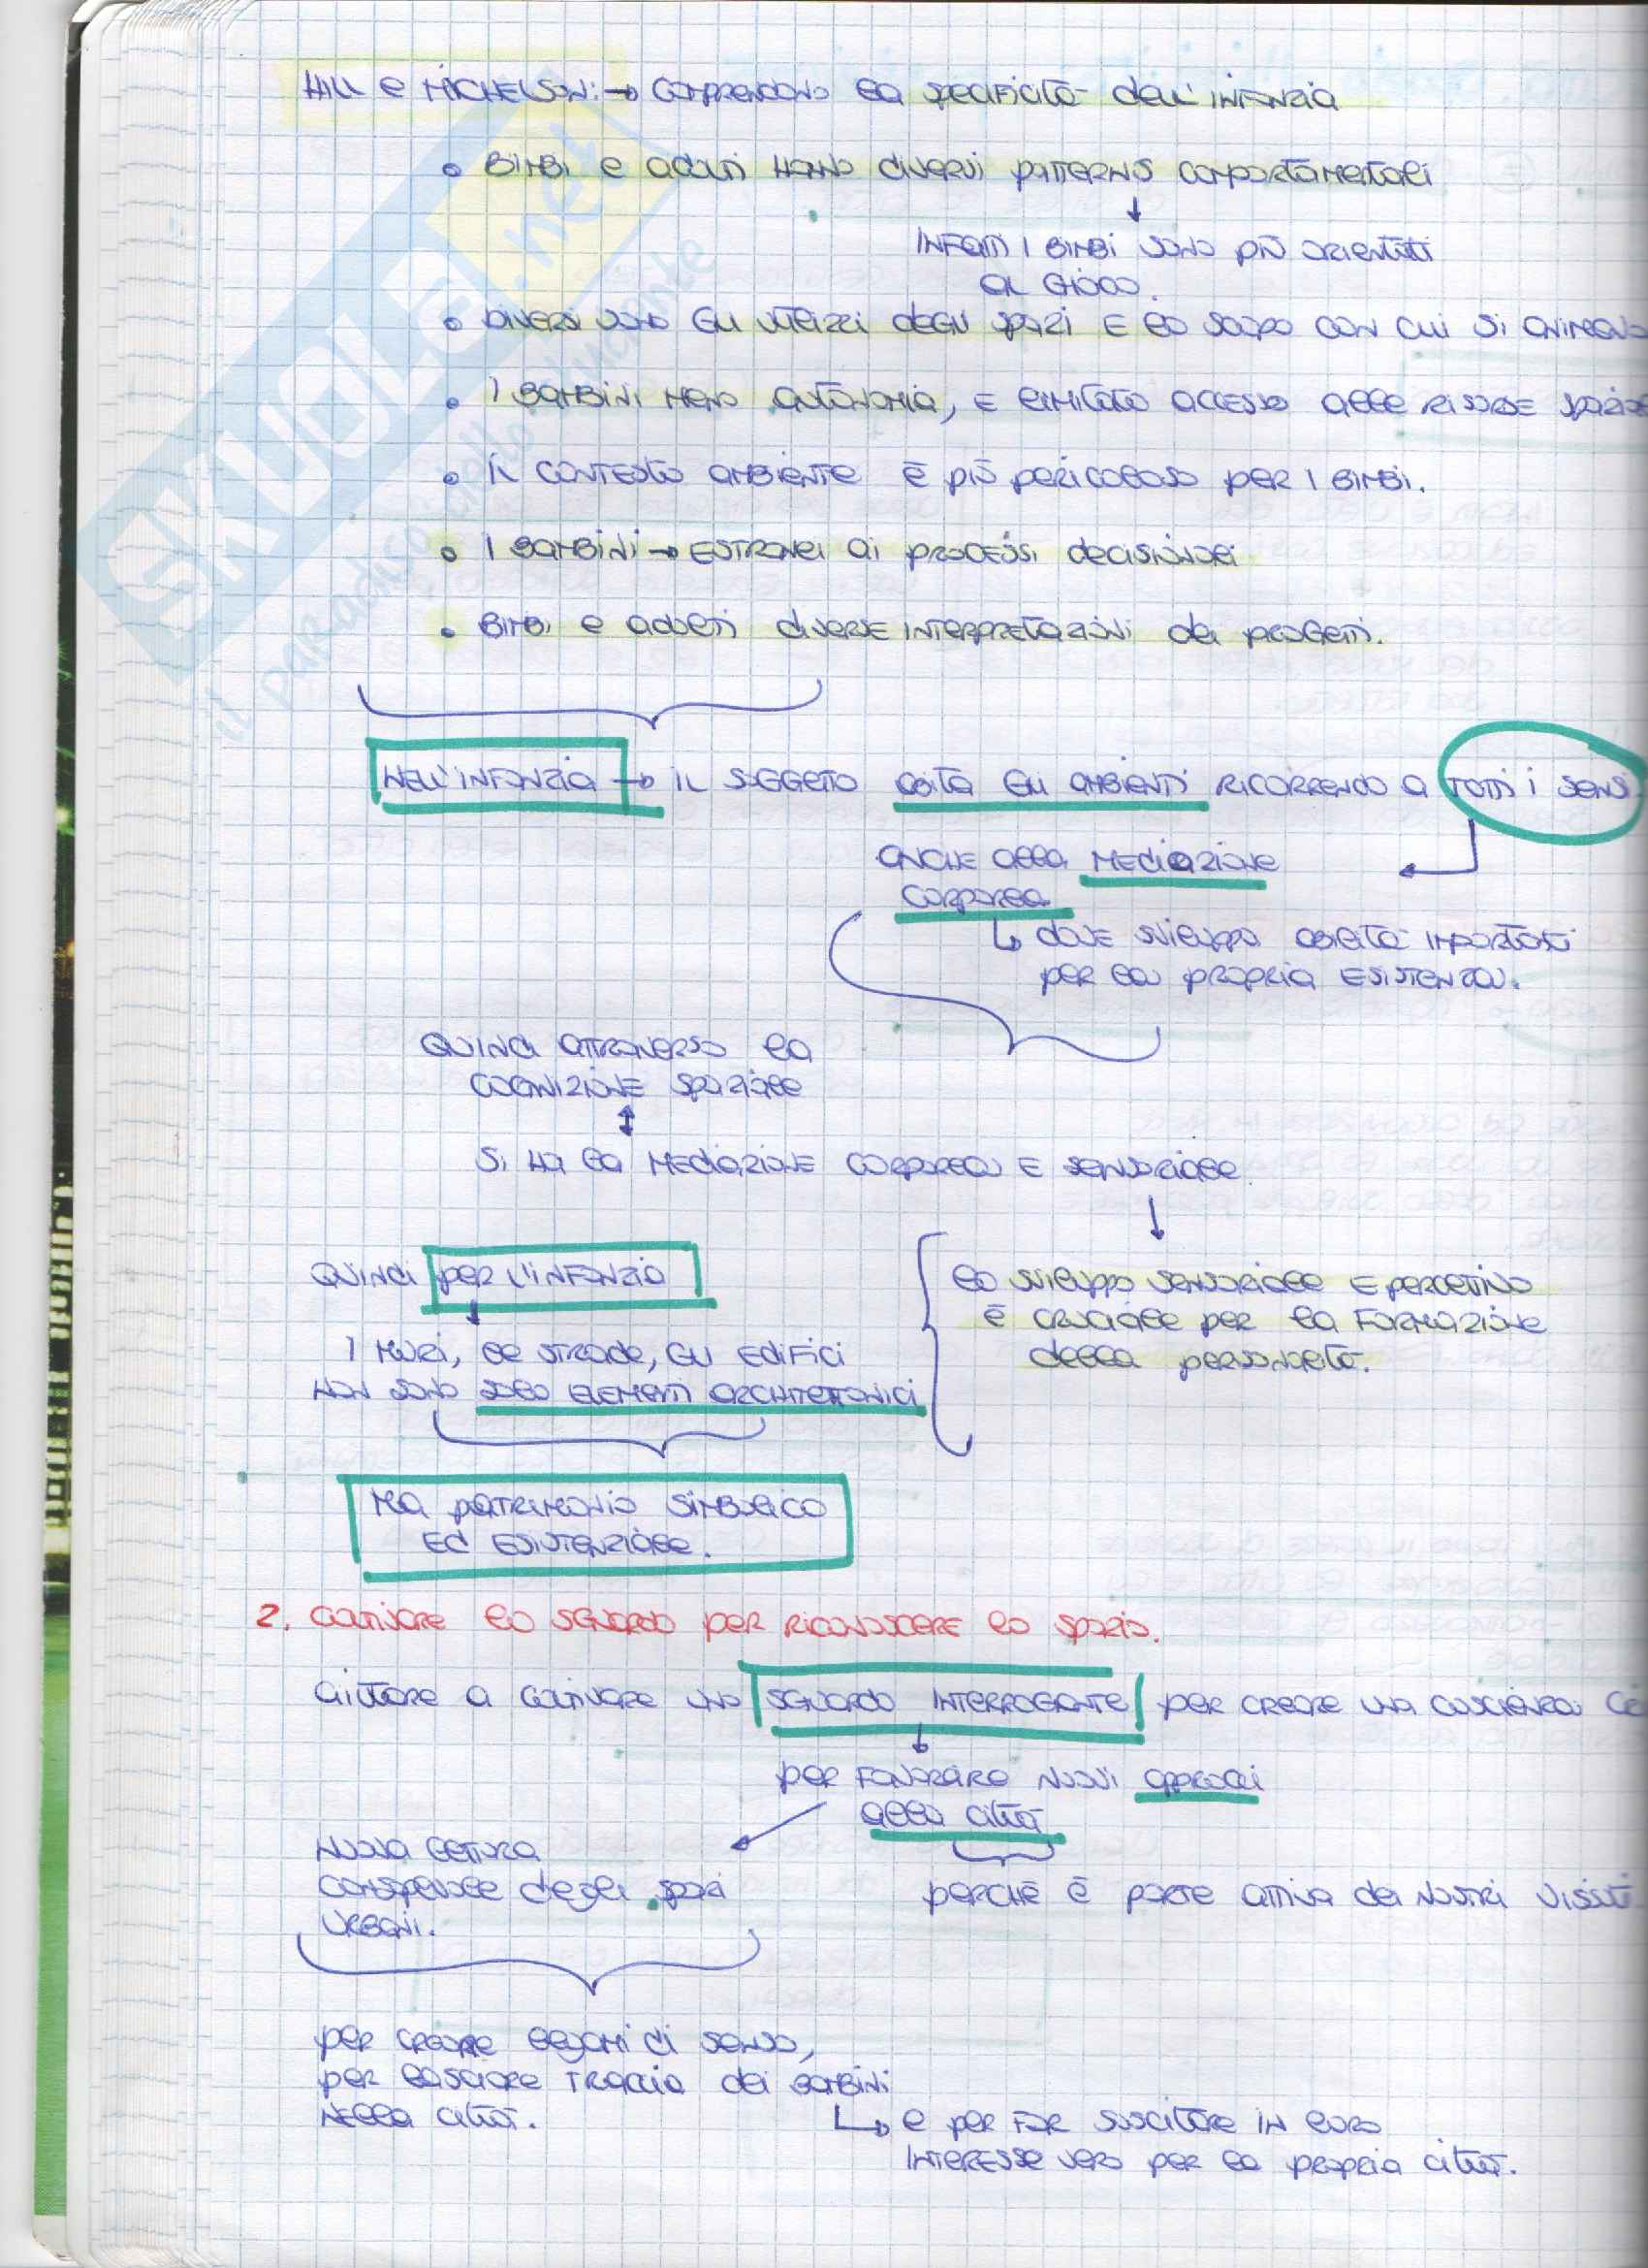 HILL e MICHELSON: → COMPRENDONO la SPECIFICITÀ dell'INFANZIA
• BIMBI e adulti HANNO diversi patterns comportamentali
↓
INFATTI I BIMBI SONO più orientati
al gioco.
• DIVERSI SONO gli utilizzi degli spazi E lo scopo con cui si
• I BAMBINI MENO autonomia, E limitato accesso alle risorse
• il contesto ambiente è più pericoloso per I BIMBI.
• I BAMBINI → ESTRANEI ai processi decisionali
• BIMBI e adulti diverse interpretazioni dei progetti.
NELL'INFANZIA → il soggetto abita gli ambienti RICORRENDO a TUTTI i SENSI
ANCHE alla MEDIAZIONE
corporea
↳ dove sviluppa abilità importanti
per la propria ESISTENZA.
QUINDI attraverso la
COGNIZIONE spaziale
↕
Si ha la MEDIAZIONE corporea E sensoriale
↓
QUINDI per l'infanzia
↓
lo sviluppo sensoriale E percettivo
è cruciale per la FORMAZIONE
della personalità.
I muri, le strade, gli edifici
non sono solo elementi architettonici
Ma patrimonio simbolico
Ed esistenziale.
2. coltivare lo sguardo per RICONOSCERE lo spazio.
aiutare a coltivare uno SGUARDO INTERROGANTE per creare una coscienza
↓
per favorire nuovi approcci
alla città
Nuova lettura
consapevole degli spazi
urbani.
perché è parte attiva dei nostri
per creare legami di senso,
per lasciare traccia dei bambini
nella città.
↳ e per far suscitare in loro
INTERESSE vero per la propria città.
SKUOLA.net
il paradiso dello studente